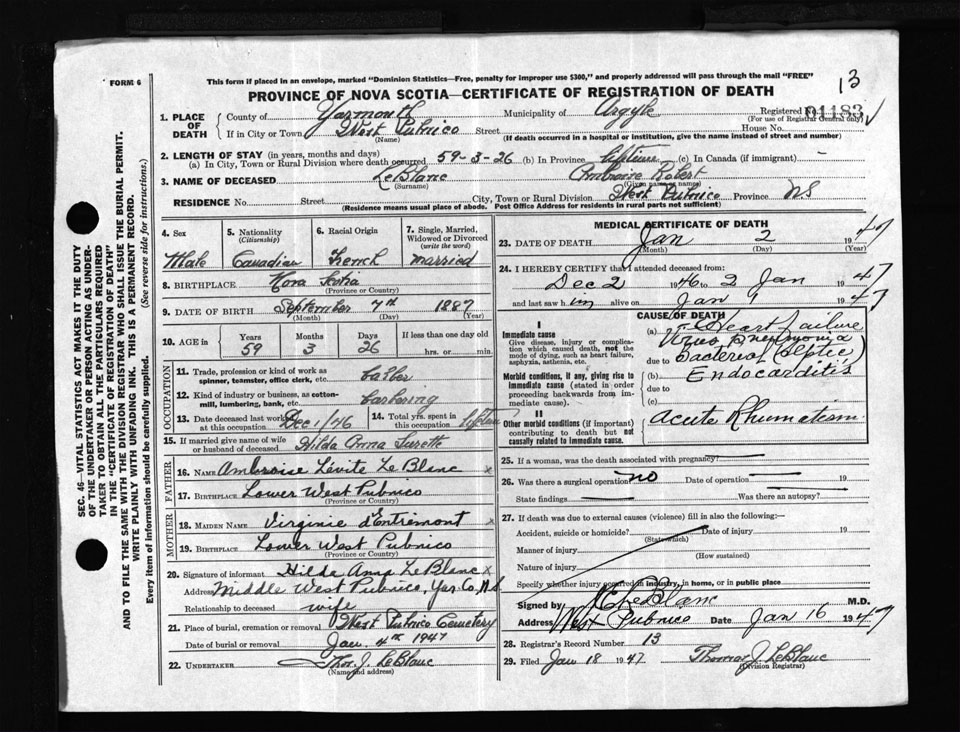 FORM 6
This form if placed in an envelope, marked "Dominion Statistics—Free, penalty for improper use $300," and properly addressed will pass through the mail "FREE"
13
PROVINCE OF NOVA SCOTIA—CERTIFICATE OF REGISTRATION OF DEATH
1. PLACE OF DEATH County of Yarmouth Municipality of Argyle Registered No. 01183
(For use of Registrar General only)
If in City or Town West Pubnico Street House No.
(Name) (If death occurred in a hospital or institution, give the name instead of street and number)
2. LENGTH OF STAY (in years, months and days)
(a) In City, Town or Rural Division where death occurred 59-3-26 (b) In Province lifetime (c) In Canada (if immigrant) –
3. NAME OF DECEASED LeBlanc Ambroise Robert
(Surname) (Given name or names)
RESIDENCE No. Street City, Town or Rural Division West Pubnico Province N.S.
(Residence means usual place of abode. Post Office Address for residents in rural parts not sufficient)
4. Sex 5. Nationality (Citizenship) 6. Racial Origin 7. Single, Married, Widowed or Divorced (write the word)
Male Canadian French married
8. BIRTHPLACE Nova Scotia
(Province or Country)
9. DATE OF BIRTH September 7th 1887
(Month) (Day) (Year)
10. AGE in Years Months Days If less than one day old
59 3 26 hrs. or min.
OCCUPATION
11. Trade, profession or kind of work as spinner, teamster, office clerk, etc. barber
12. Kind of industry or business, as cotton-mill, lumbering, bank, etc. barbering
13. Date deceased last worked at this occupation Dec 1/46 14. Total yrs. spent in this occupation lifetime
15. If married give name of wife or husband of deceased Hilda Anna Surette
FATHER
16. NAME Ambroise Lévite LeBlanc x
17. BIRTHPLACE Lower West Pubnico
(Province or Country)
MOTHER
18. MAIDEN NAME Virginie d'Entremont x
19. BIRTHPLACE Lower West Pubnico
(Province or Country)
20. Signature of informant Hilda Anna LeBlanc x
Address Middle West Pubnico, Yar. Co. N.S.
Relationship to deceased wife
21. Place of burial, cremation or removal West Pubnico Cemetery
Date of burial or removal Jan. 4th 1947
22. UNDERTAKER Thos. J. LeBlanc
(Name and address)
MEDICAL CERTIFICATE OF DEATH
23. DATE OF DEATH Jan 2 1947
(Month) (Day) (Year)
24. I HEREBY CERTIFY that I attended deceased from:
Dec 2 1946 to 2 Jan 1947
and last saw him alive on Jan 1 1947
CAUSE OF DEATH
I
Immediate cause
Give disease, injury or complication which caused death, not the mode of dying, such as heart failure, asphyxia, asthenia, etc.
(a) Heart failure
Virus Pneumonia
due to Bacterial (Septic)
Morbid conditions, if any, giving rise to immediate cause (stated in order proceeding backwards from immediate cause).
(b) Endocarditis
due to
(c)
II
Other morbid conditions (if important) contributing to death but not causally related to immediate cause.
Acute Rhumatism
25. If a woman, was the death associated with pregnancy?
26. Was there a surgical operation no Date of operation 19
State findings Was there an autopsy?
27. If death was due to external causes (violence) fill in also the following:—
Accident, suicide or homicide? Date of injury 19
(State which)
Manner of injury
(How sustained)
Nature of injury
Specify whether injury occurred in industry, in home, or in public place
Signed by LeBlanc M.D.
Address West Pubnico Date Jan 16 1947
28. Registrar's Record Number 13
29. Filed Jan 18 1947 Thomas J. LeBlanc
(Division Registrar)
SEC. 46—VITAL STATISTICS ACT MAKES IT THE DUTY
OF THE UNDERTAKER OR PERSON ACTING AS UNDER-
TAKER TO OBTAIN ALL THE PARTICULARS REQUIRED
IN THE "CERTIFICATE OF REGISTRATION OF DEATH"
AND TO FILE THE SAME WITH THE DIVISION REGISTRAR WHO SHALL ISSUE THE BURIAL PERMIT.
WRITE PLAINLY WITH UNFADING INK. THIS IS A PERMANENT RECORD.
Every item of information should be carefully supplied. (See reverse side for instructions.)